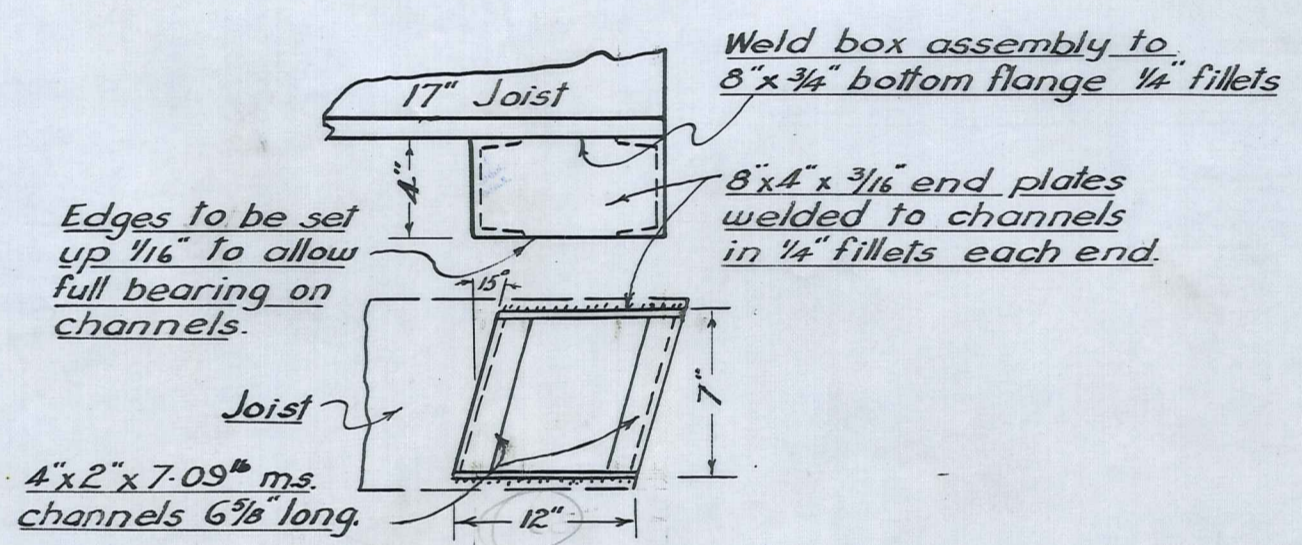 17" Joist
Weld box assembly to
8"x 3/4" bottom flange 1/4" fillets
4"
8"x4"x 3/16" end plates
welded to channels
in 1/4" fillets each end.
Edges to be set
up 1/16" to allow
full bearing on
channels.
15°
7"
Joist
4"x2"x 7·09lb ms.
channels 6 5/8" long.
12"